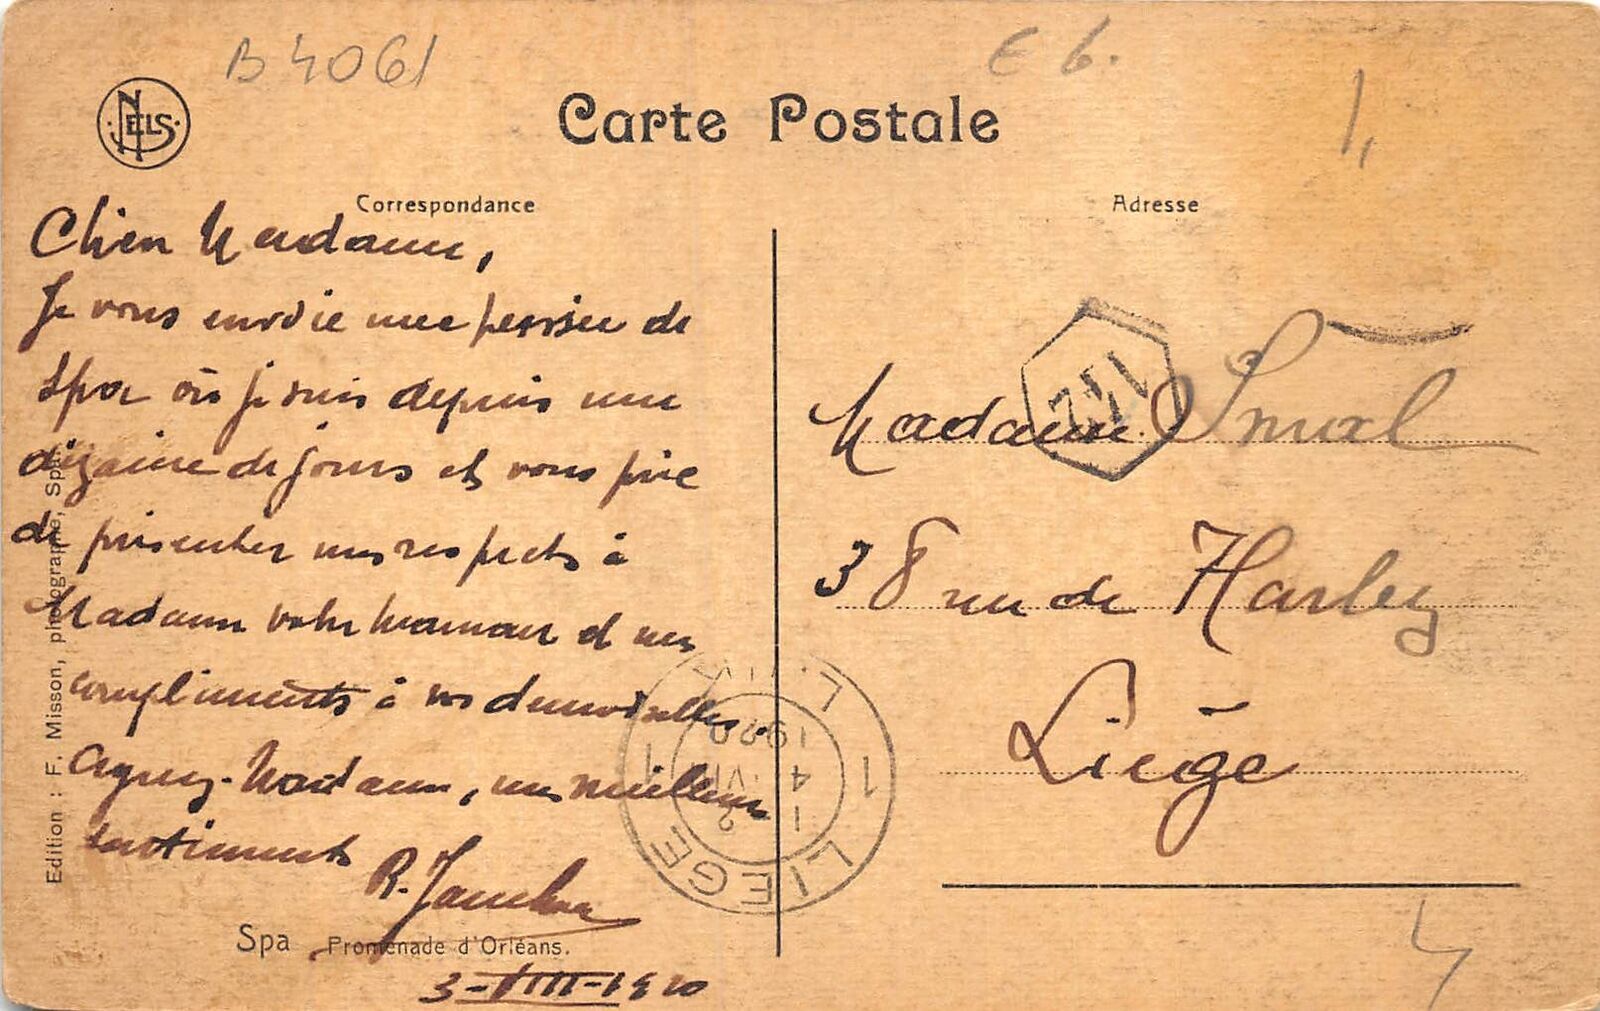 B 4061
E 6.
1,
NELS
Carte Postale
Correspondance
Adresse
Chère Madame,
Je vous envoie une pensée de
Spa où je suis depuis une
dizaine de jours et vous prie
de présenter mes respects à
Madame votre maman et mes
compliments à vos demoiselles.
Agréez, Madame, mes meilleurs
sentiments
R.
3-VIII-1920
Spa Promenade d'Orléans.
Edition : F. Misson, photographe, Spa.
Madame Smal
38 rue de Harlez
Liège
LIEGE
1
1
1920
4